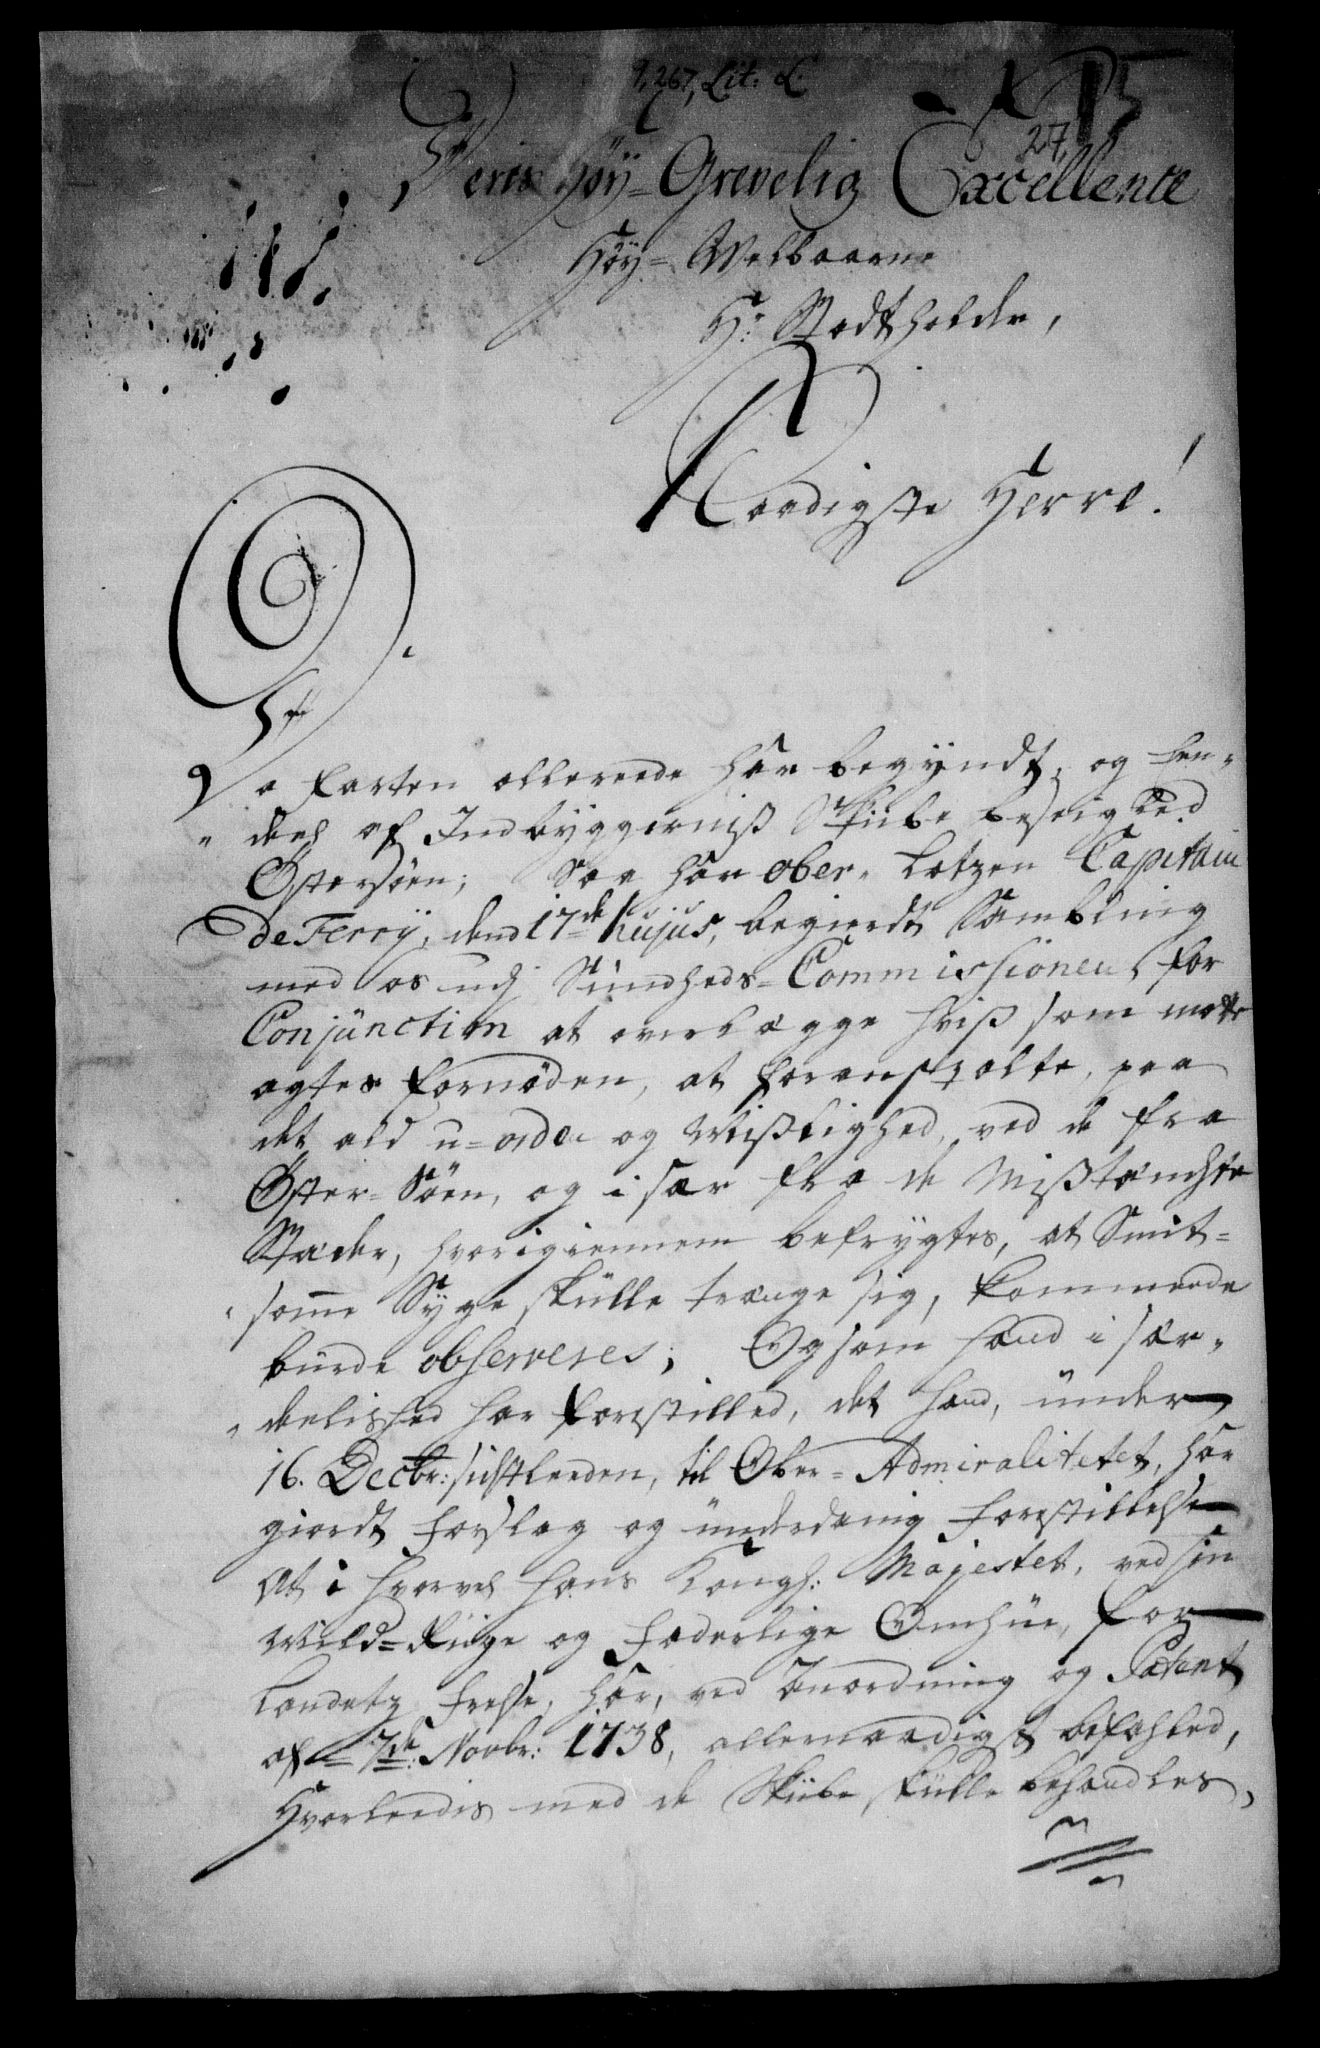 9, 267, Lit: L.
27,
Deris Høy=Grevelig Excellence
Høy=Welbaarne
Hr: Stadtholder,
Naadigste Herre!
Da Farten allereede har begyndt, og Een-
deel af Indbyggernis Skiibe beseigled
Østersöen; Saa har ober-Lotzen Capitain
De Ferrÿ, dend 17de hujus, begierdt Sambling
med os udj Sundheds=Commissionen, for
Conjunction at overlægge hviß som motte
agtes fornöden, at foranstalte, paa
det ald u=orden og Mißlighed, ved de fra
Øster=Söen, og i sær fra de Mißtænchte
Stæder, hvorigiennem befrygtes, at Smit=
somme Syge skulle trænge sig, kommende
burde observeres; Og som hand i sær-
deelished har forestilled, det hand, under
16. Decbr: sidstleeden, til Ober=Admiralitetet, har
giordt forslag og underdanig forestillelse
At i hvorvel Hans Kongl: Majestet, ved sin
Mild=Riige og Faderlige Omhue, for
Landetz Frelse, har, ved Anordning og Patent
af 7de Novbr: 1738, allernaadigst befahled,
Hvorleedis med de Skiibe skulle behandles,